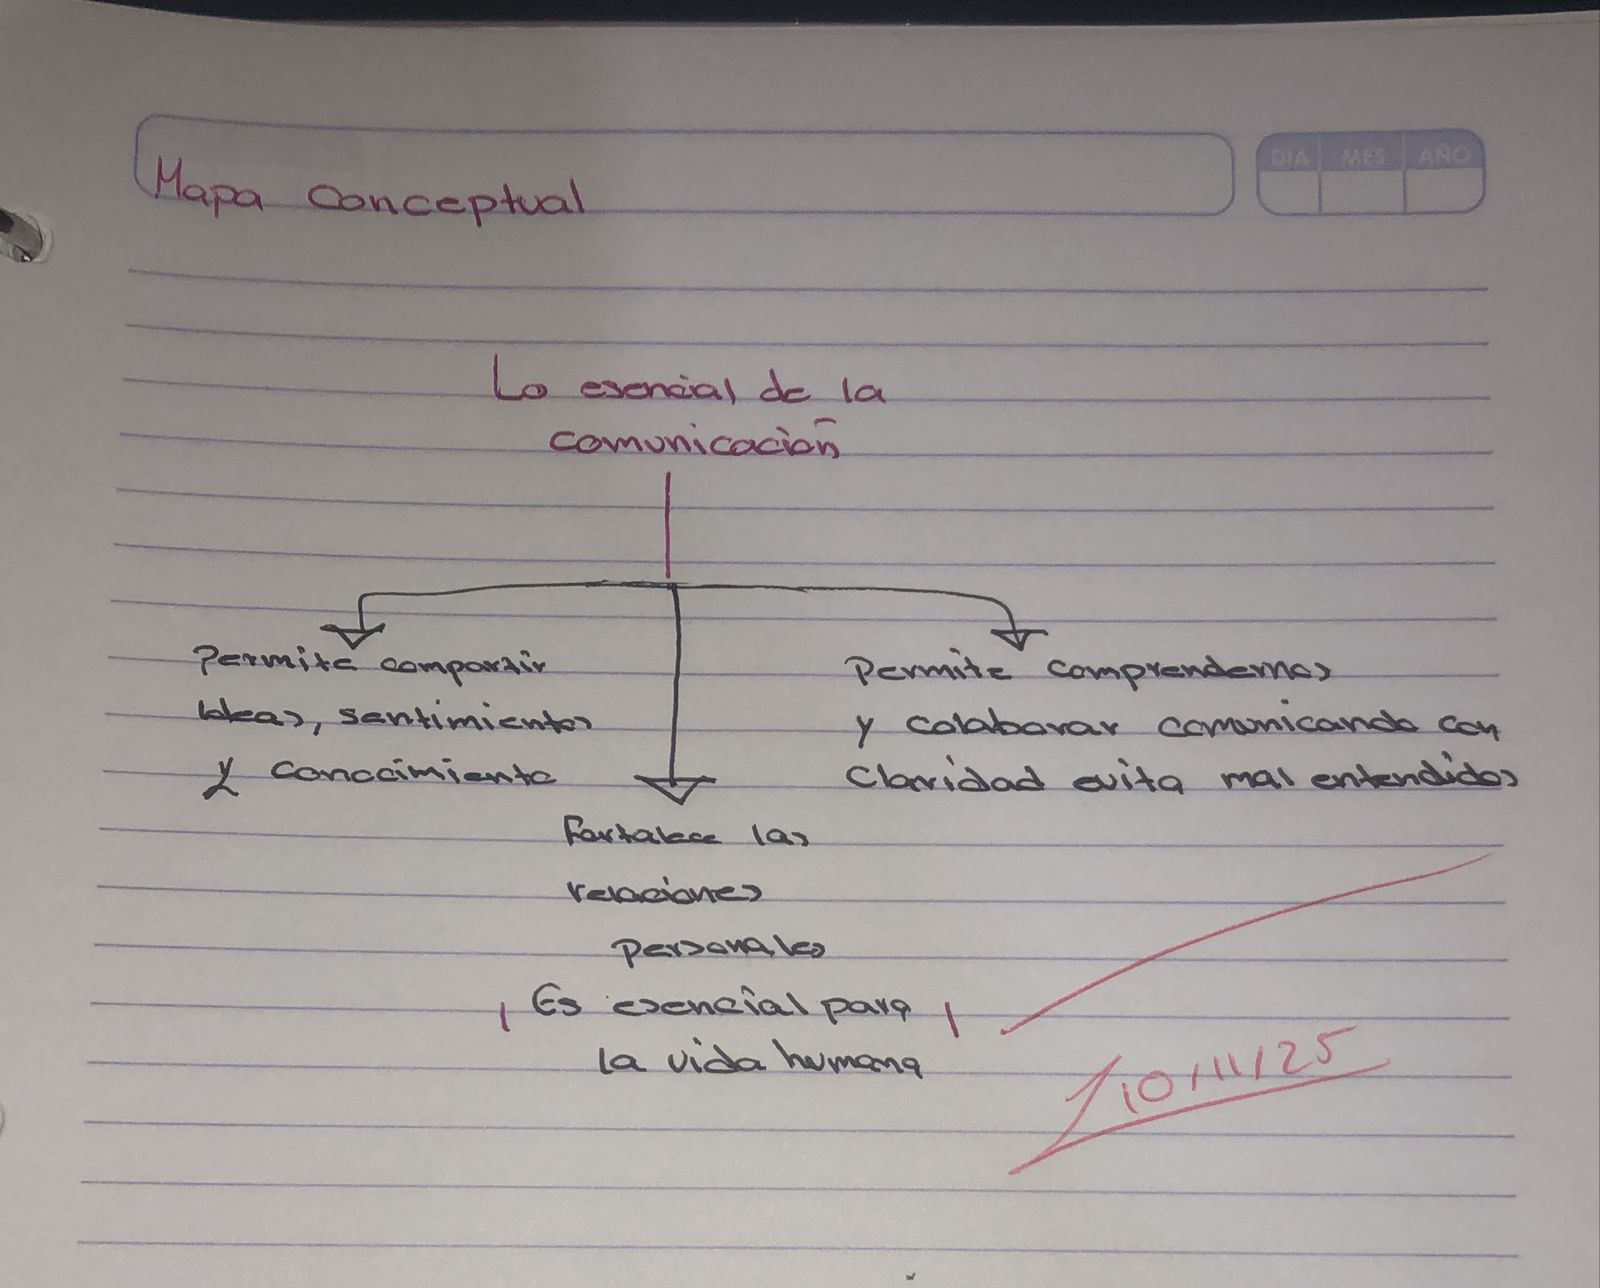 Mapa Conceptual
DIA MES AÑO
Lo esencial de la
comunicación
Permite compartir
Ideas, sentimientos
y conocimiento
Permite comprendernos
y colaborar comunicando con
Claridad evita mal entendidos
Fortalece las
relaciones
personales
Es esencial para
la vida humana
10/11/25